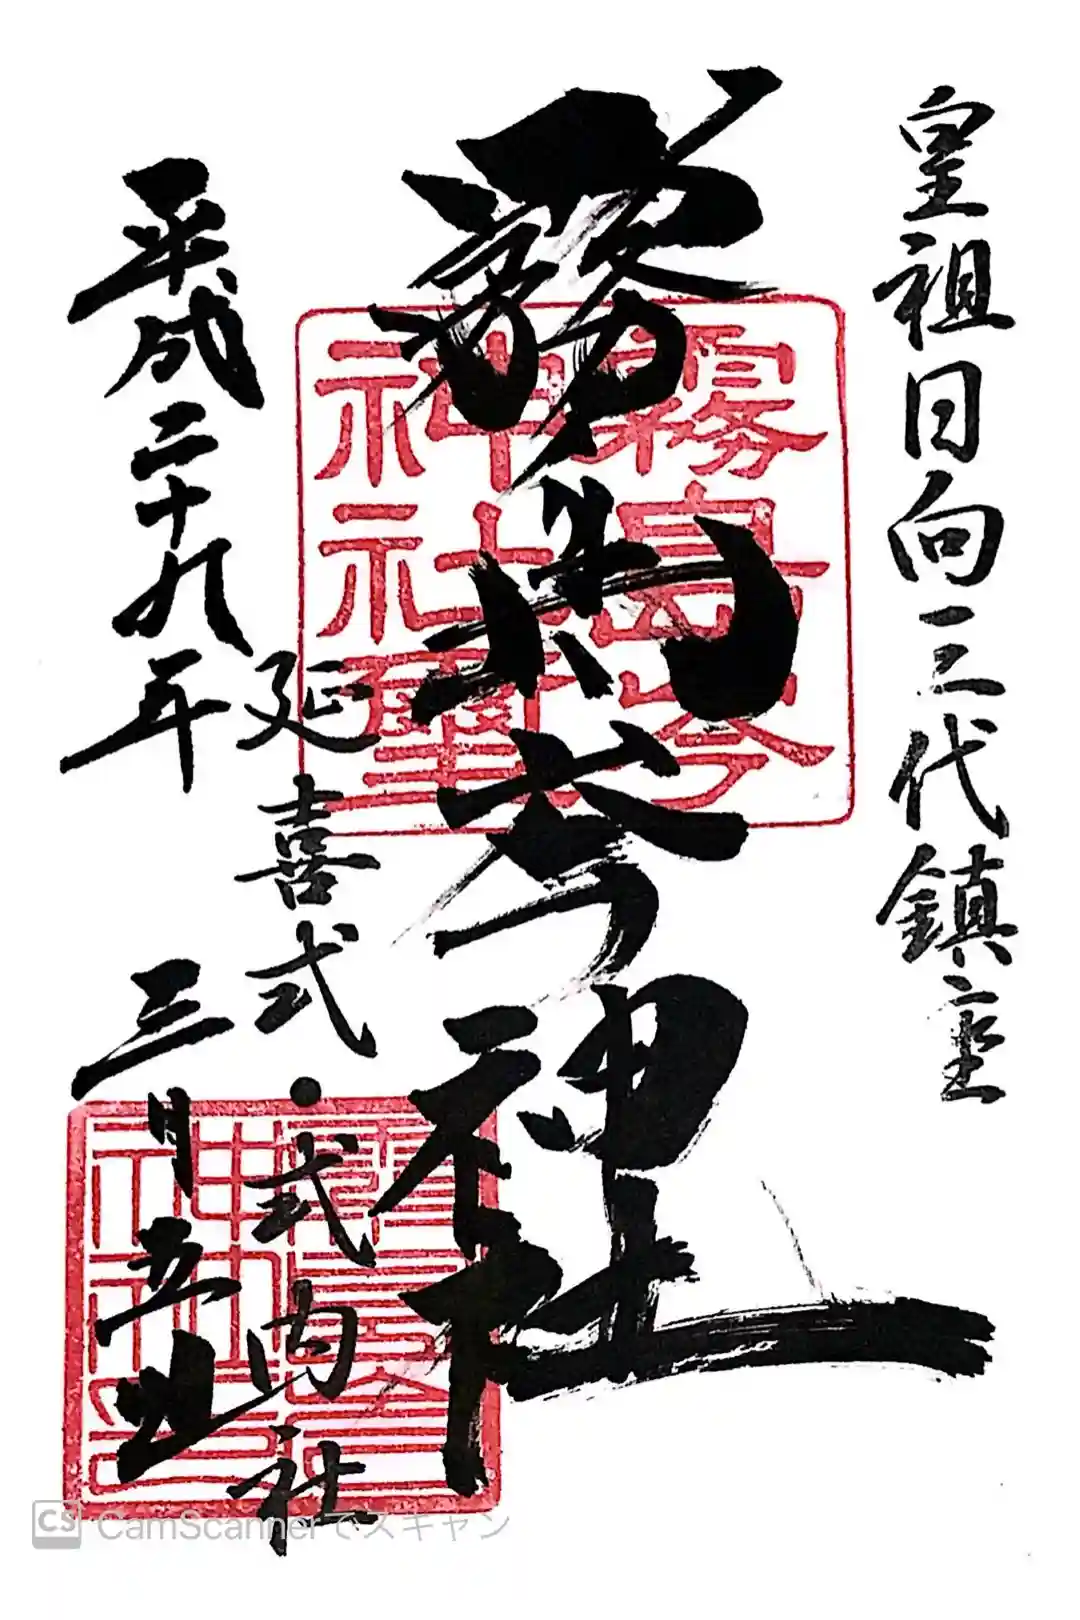 皇祖日向三代鎮座
霧島岑神社
霧島岑
神社璽
延喜式・式内社
平成二十九年 三月五日
霧島岑
神社印
CS CamScannerでスキャン